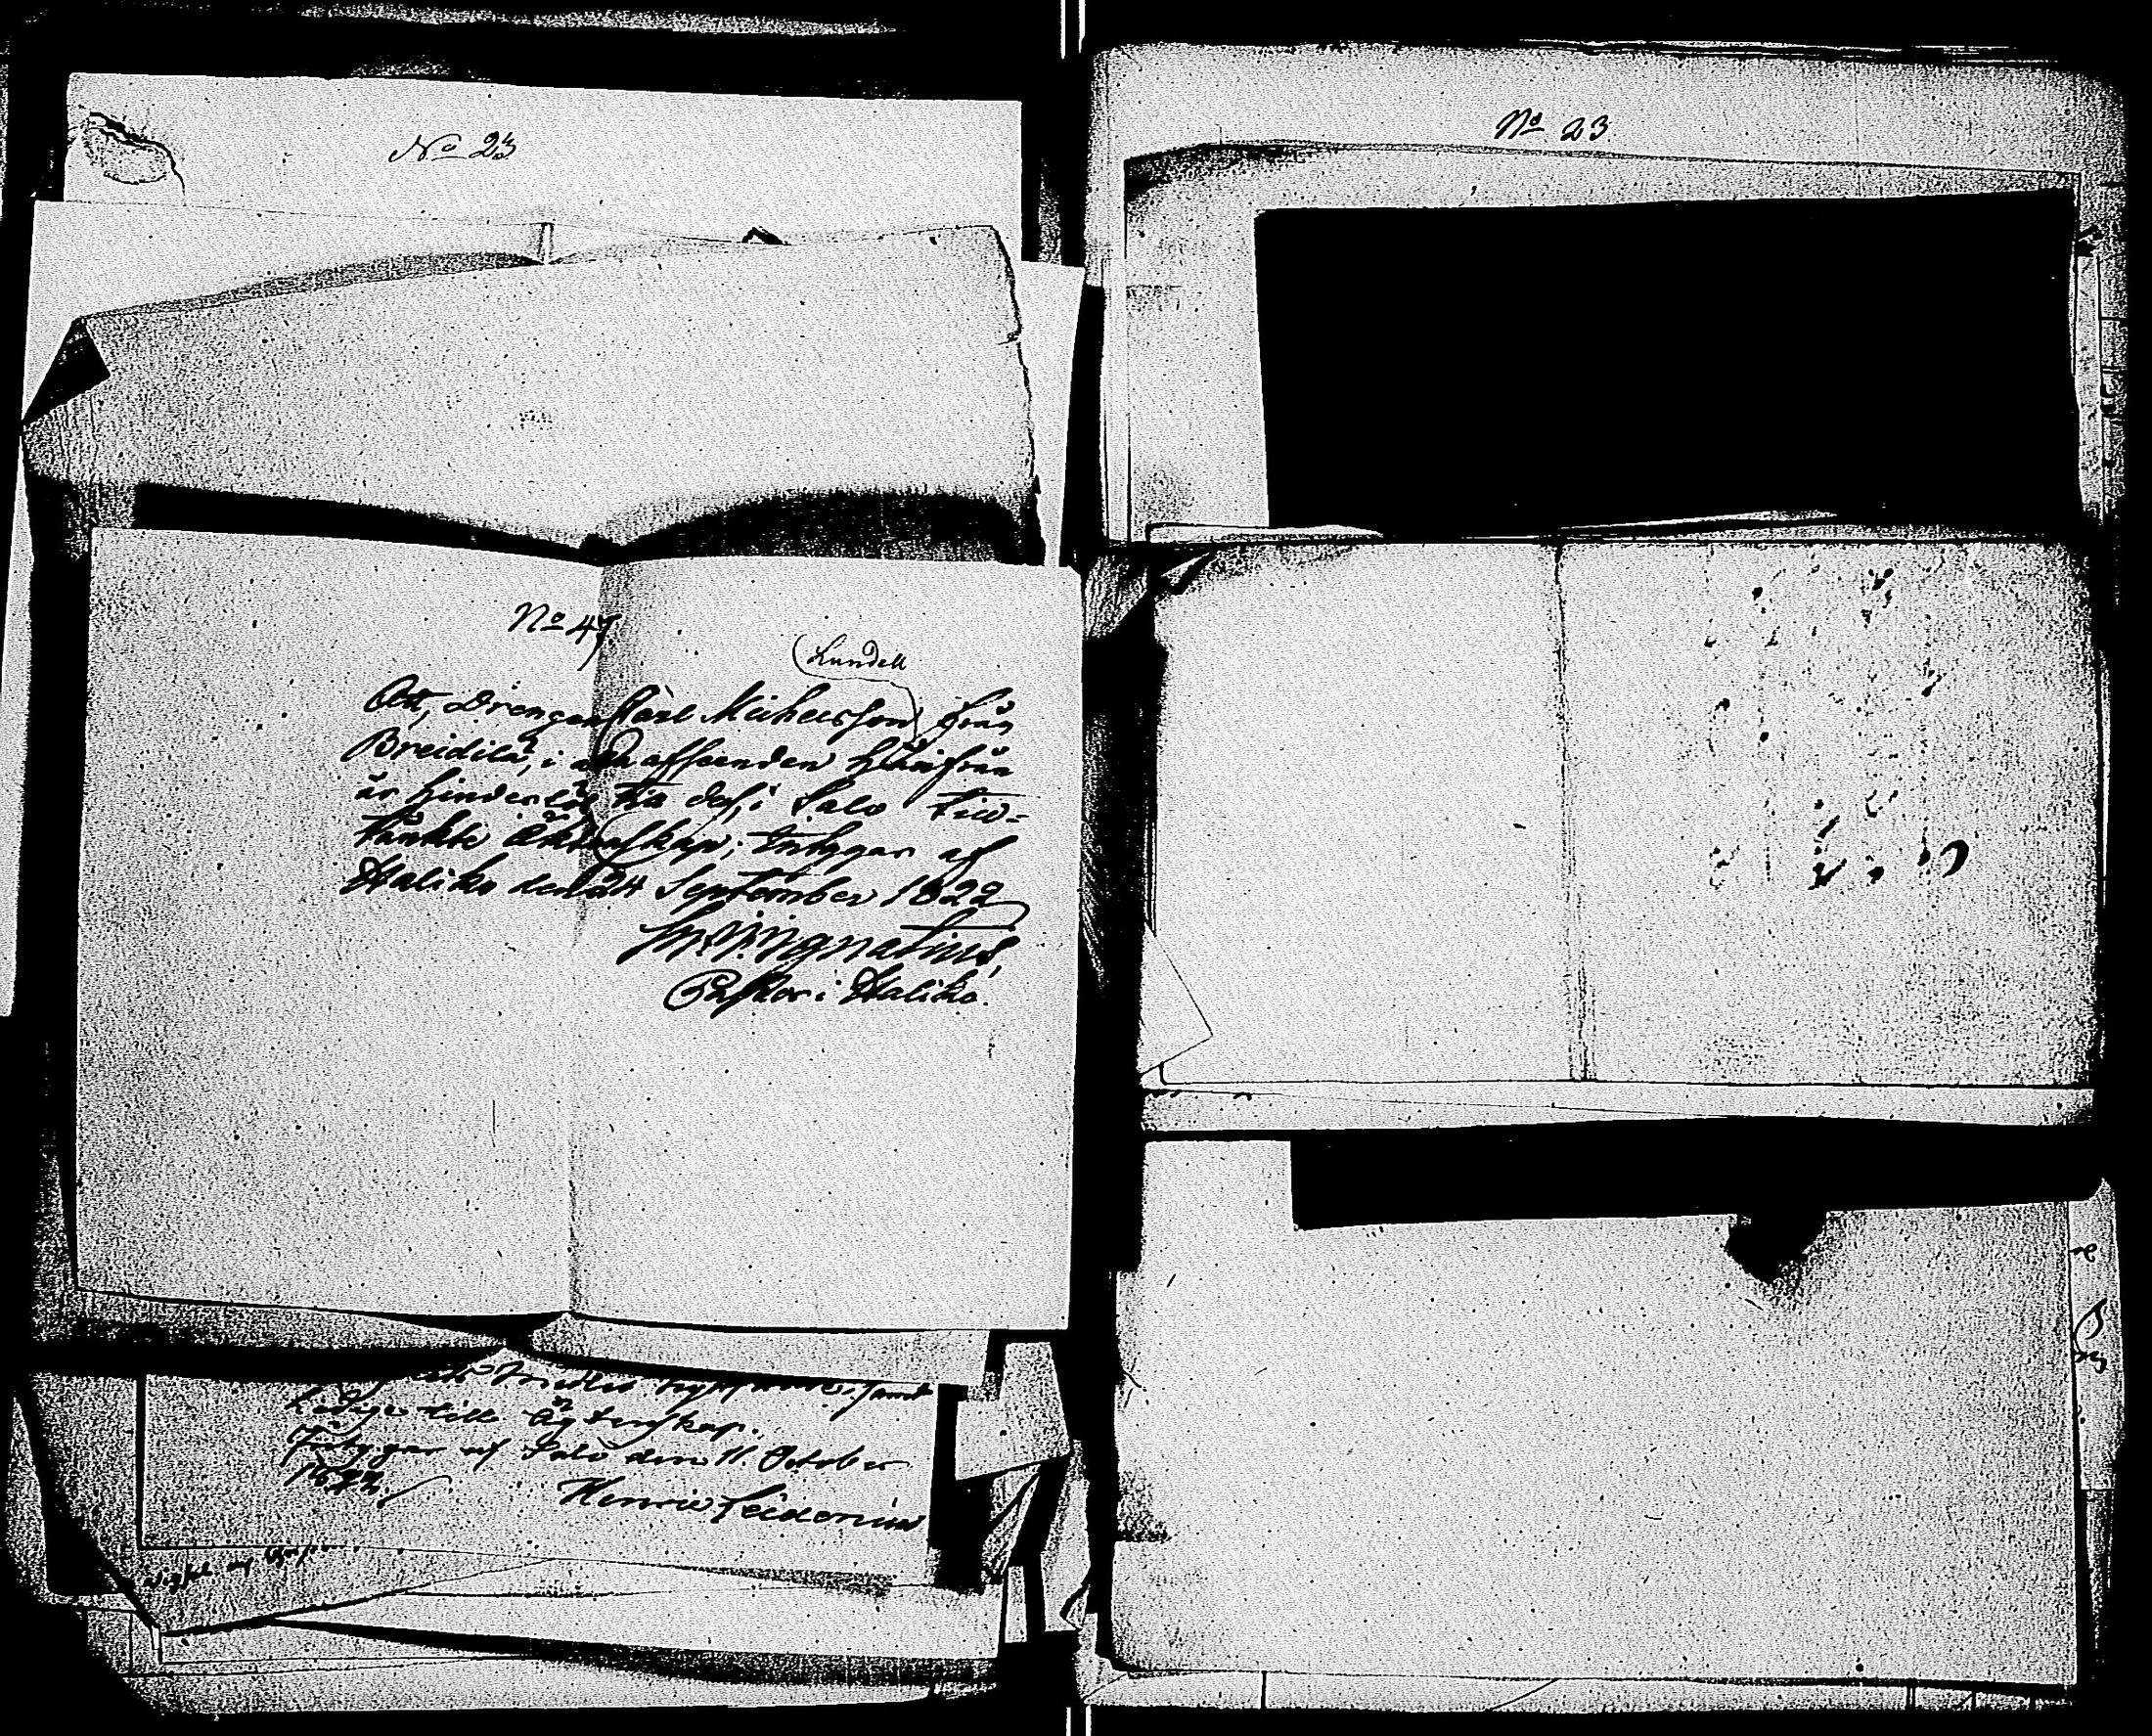 No 23
No 47
Lundell
Att, Drengen Carl Michelsson från
Breidilä, i afseenden härifrån
är hinderlös til des, i Salo tilltänkte
Äktenskap; intygar af
Haliko den 24 September 1822
Ignatius,
Pastor i Haliko.
Ledige till Ägtenskap.
Intygar af Salo den 11. October
1822.
Henric Heidenius
No 23